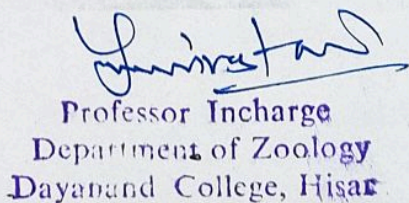 Professor Incharge
Department of Zoology
Dayanand College, Hisar